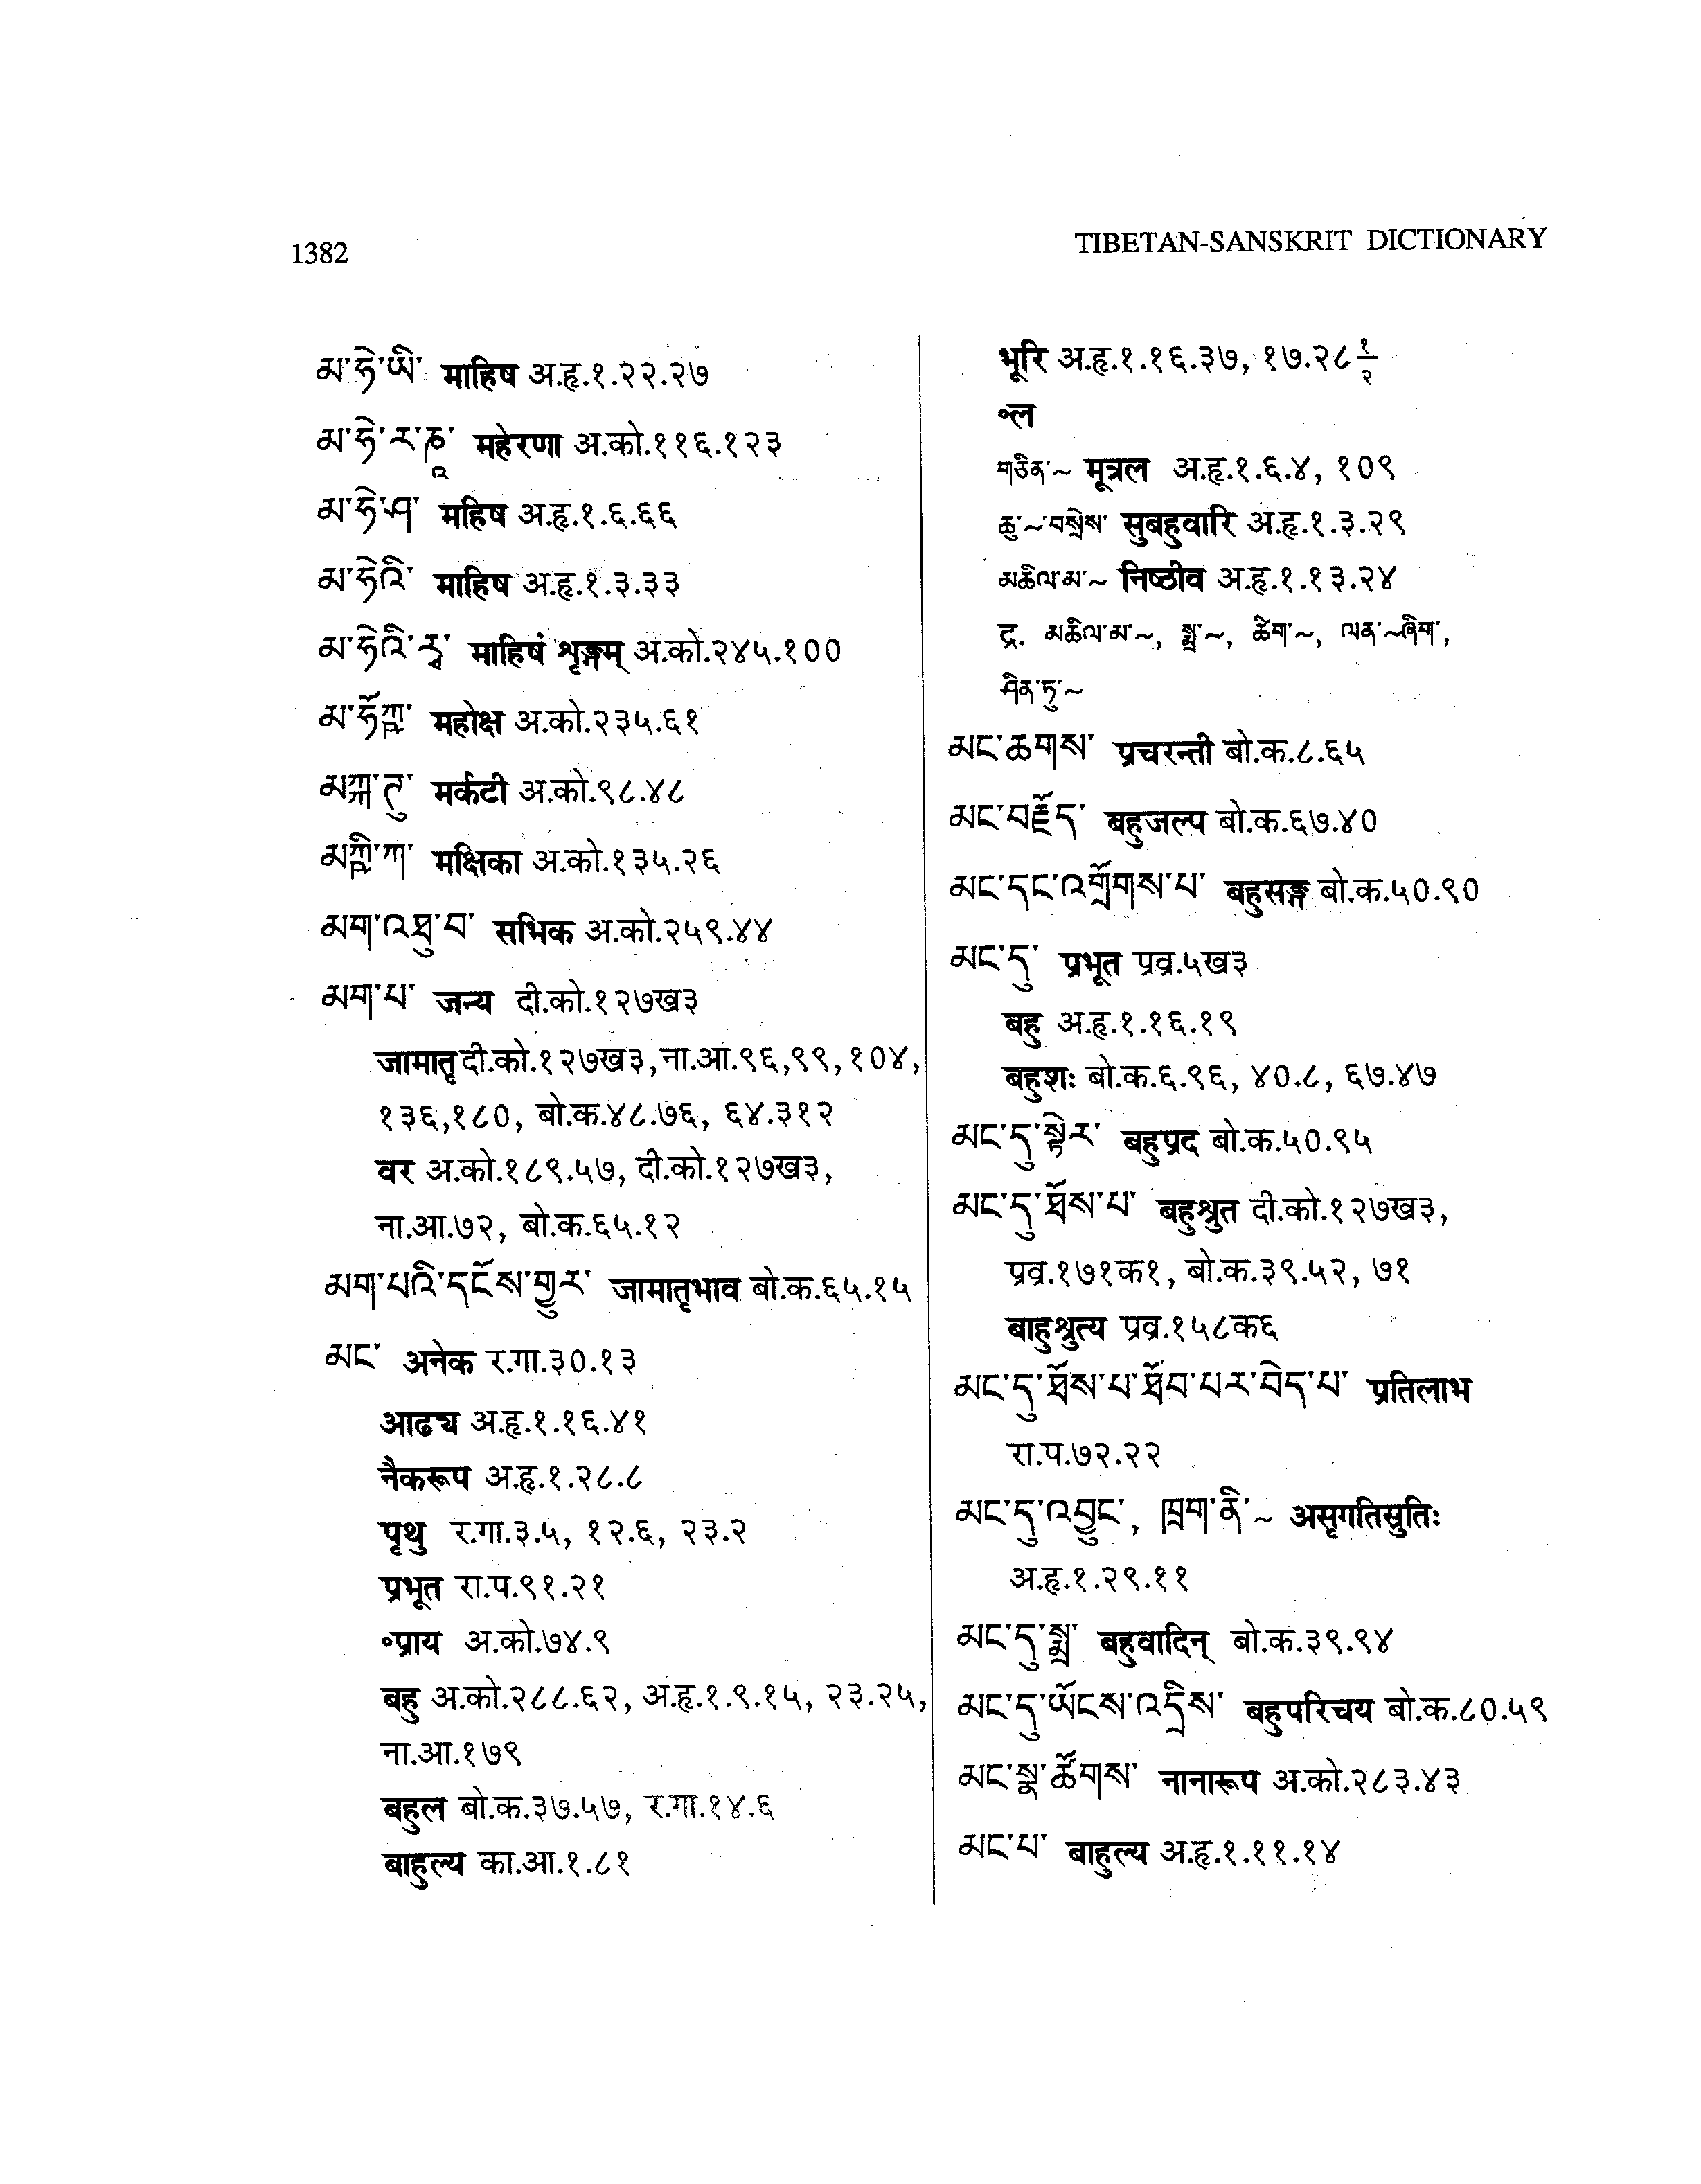 1382
TIBETAN-SANSKRIT DICTIONARY
མ་ཧེ་ཡི་ माहिष अ.हृ.१.२२.२७
མ་ཧེ་ར་ཎཱ་ महेरणा अ.को.११६.१२३
མ་ཧེ་ཤ་ महिष अ.हृ.१.६.६६
མ་ཧེའི་ माहिष अ.हृ.१.३.३३
མ་ཧེའི་རྭ་ माहिषं शृङ्गम् अ.को.२४५.१००
མ་ཧོཀྵ་ महोक्ष अ.को.२३५.६१
མཀྐ་ཏུ་ मर्कटी अ.को.९८.४८
མཀྵི་ཀ་ मक्षिका अ.को.१३५.२६
མག་འཐུ་བ་ सभिक अ.को.२५९.४४
མག་པ་ जन्य दी.को.१२७ख३
जामातृ दी.को.१२७ख३, ना.आ.९६,९९,१०४,
१३६,१८०, बो.क.४८.७६, ६४.३१२
वर अ.को.१८९.५७, दी.को.१२७ख३,
ना.आ.७२, बो.क.६५.१२
མག་པའི་དངོས་གྱུར་ जामातृभाव बो.क.६५.१५
མང་ अनेक र.गा.३०.१३
आढ्य अ.हृ.१.१६.४१
नैकरूप अ.हृ.१.२८.८
पृथु र.गा.३.५, १२.६, २३.२
प्रभूत रा.प.९१.२१
॰प्राय अ.को.७४.९
बहु अ.को.२८८.६२, अ.हृ.१.९.१५, २३.२५,
ना.आ.१७९
बहुल बो.क.३७.५७, र.गा.१४.६
बाहुल्य का.आ.१.८१
भूरि अ.हृ.१.१६.३७, १७.२८ १/२
॰ल
གཅིན་~ मूत्रल अ.हृ.१.६.४, १०९
ཆུ་~་བསྲེས་ सुबहुवारि अ.हृ.१.३.२९
མཆིལ་མ་~ निष्ठीव अ.हृ.१.१३.२४
द्र. མཆིལ་མ་~, སྨྲ་~, ཚིག་~, ལན་~ཞིག་,
ཤིན་ཏུ་~
མང་ཆགས་ प्रचरन्ती बो.क.८.६५
མང་བརྗོད་ बहुजल्प बो.क.६७.४०
མང་དང་འགྲོགས་པ་ बहुसङ्ग बो.क.५०.९०
མང་དུ་ प्रभूत प्रव्र.५ख३
बहु अ.हृ.१.१६.१९
बहुशः बो.क.६.९६, ४०.८, ६७.४७
མང་དུ་སྟེར་ बहुप्रद बो.क.५०.९५
མང་དུ་ཐོས་པ་ बहुश्रुत दी.को.१२७ख३,
प्रव्र.१७१क१, बो.क.३९.५२, ७१
बाहुश्रुत्य प्रव्र.१५८क६
མང་དུ་ཐོས་པ་ཐོབ་པར་བེད་པ་ प्रतिलाभ
रा.प.७२.२२
མང་དུ་འབྱུང་, ཁྲག་ནི་~ असृगतिस्रुतिः
अ.हृ.१.२९.११
མང་དུ་སྨྲ་ बहुवादिन् बो.क.३९.९४
མང་དུ་ཡོངས་འདྲིས་ बहुपरिचय बो.क.८०.५९
མང་སྣ་ཚོགས་ नानारूप अ.को.२८३.४३
མང་པ་ बाहुल्य अ.हृ.१.११.१४